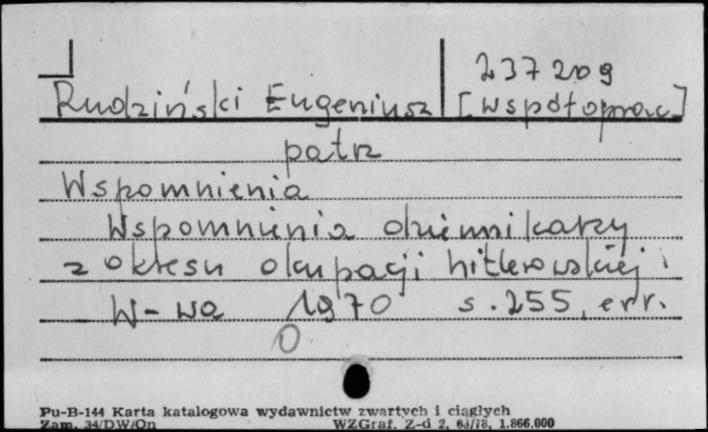 237209
Rudziński Eugeniusz [współoprac.]
patrz
Wspomnienia
Wspomnienia dziennikarzy
z okresu okupacji hitlerowskiej
W-wa 1970 s. 255, err.
0
Pu-B-144 Karta katalogowa wydawnictw zwartych i ciągłych
Zam. 34/DW/On WZGraf. Z-d 2, 63/78, 1.866.000